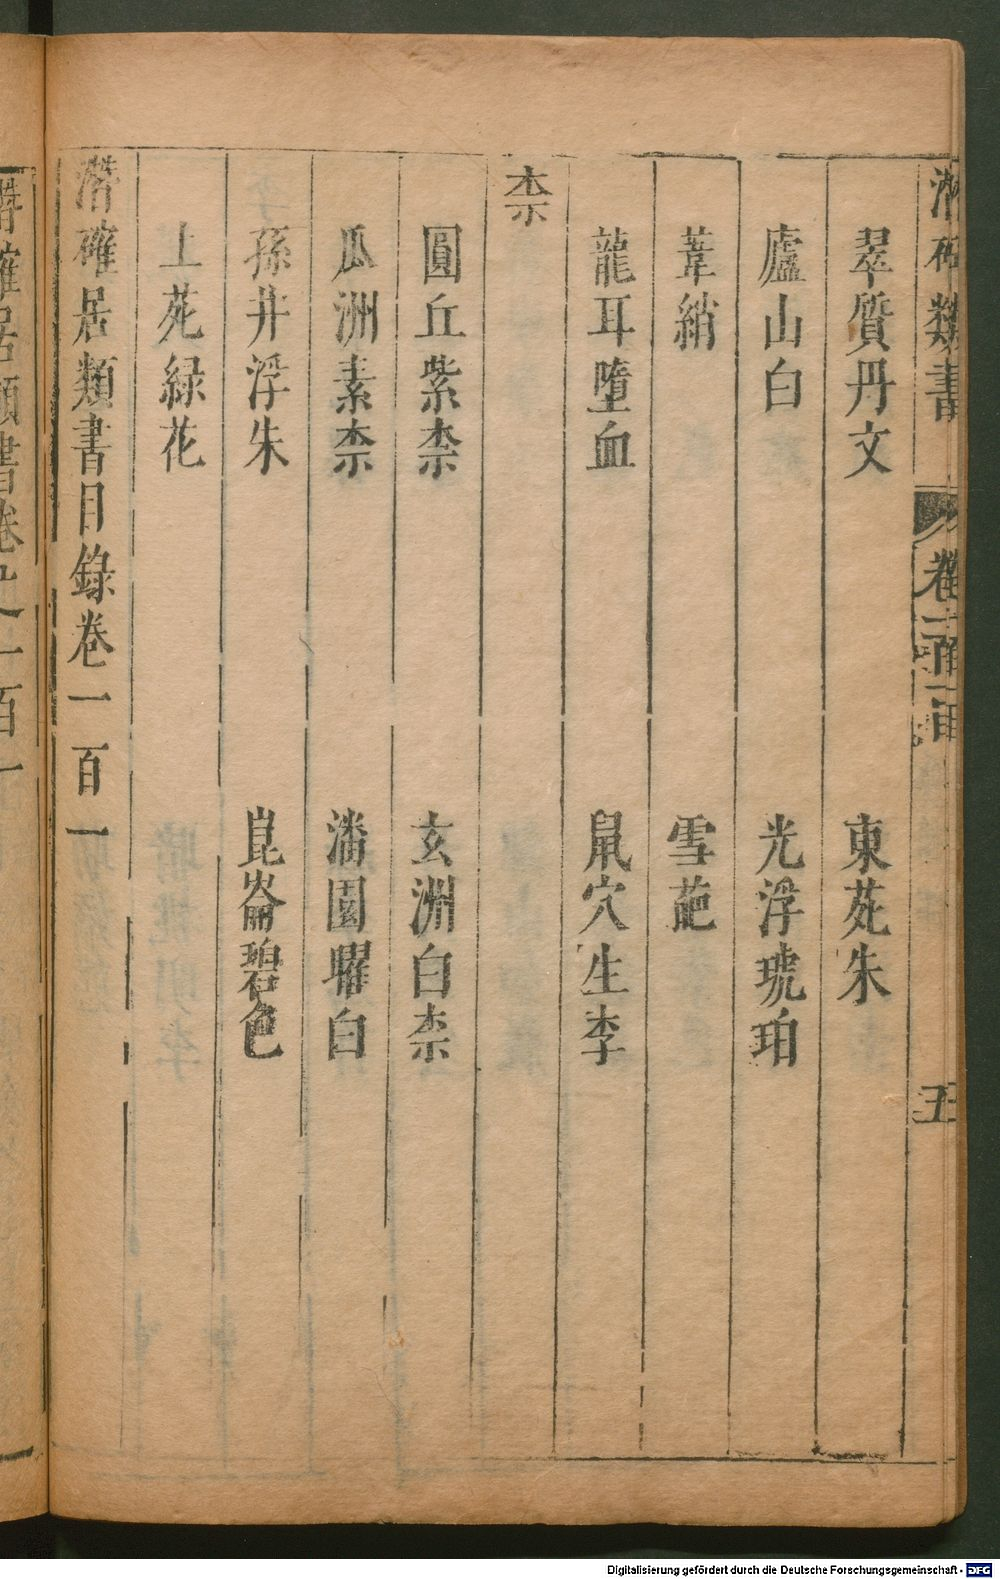 潛確類書
卷一百一
五
翠質丹文　東苑朱
廬山白　光浮琥珀
葦綃　雪葩
龍耳墮血　鼠穴生李
柰
圓丘紫柰　玄洲白柰
瓜洲素柰　潘園曜白
孫井浮朱　崑崙碧色
上苑緑花
潛確居類書目錄卷一百一
潛確居類書卷之一百一
Digitalisierung gefördert durch die Deutsche Forschungsgemeinschaft - DFG